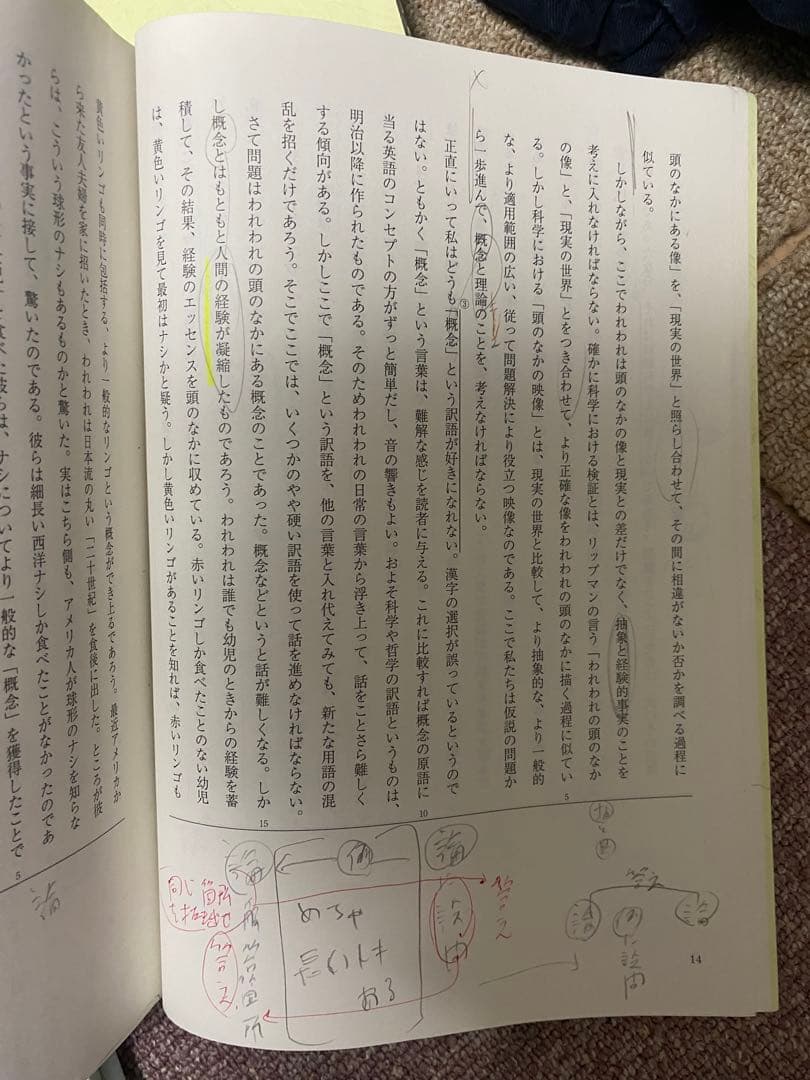 頭のなかにある像」を、「現実の世界」と照らし合わせて、その間に相違がないか否かを調べる過程に
似ている。
しかしながら、ここでわれわれは頭のなかの像と現実との差だけでなく、抽象と経験的事実のことを
考えに入れなければならない。確かに科学における検証とは、リップマンの言う「われわれの頭のなか
の像」と、「現実の世界」とをつき合わせて、より正確な像をわれわれの頭のなかに描く過程に似てい
る。しかし科学における「頭のなかの映像」とは、現実の世界と比較して、より抽象的な、より一般的
な、より適用範囲の広い、従って問題解決により役立つ映像なのである。ここで私たちは仮説の問題か
ら一歩進んで、概念と理論のことを、考えなければならない。
正直にいって私はどうも「概念」という訳語が好きになれない。漢字の選択が誤っているというので
はない。ともかく「概念」という言葉は、難解な感じを読者に与える。これに比較すれば概念の原語に
当る英語のコンセプトの方がずっと簡単だし、音の響きもよい。およそ科学や哲学の訳語というものは、
明治以降に作られたものである。そのためわれわれの日常の言葉から浮き上って、話をことさら難しく
する傾向がある。しかしここで「概念」という訳語を、他の言葉と入れ代えてみても、新たな用語の混
乱を招くだけであろう。そこでここでは、いくつかのやや硬い訳語を使って話を進めなければならない。
さて問題はわれわれの頭のなかにある概念のことであった。概念などというと話が難しくなる。しか
し概念とはもともと人間の経験が凝縮したものであろう。われわれは誰でも幼児のときからの経験を蓄
積して、その結果、経験のエッセンスを頭のなかに収めている。赤いリンゴしか食べたことのない幼児
は、黄色いリンゴを見て最初はナシかと疑う。しかし黄色いリンゴがあることを知れば、赤いリンゴも
③
5
10
15
論
答え
論
例
論
設問
答え
めちゃ
長い人も
ある
同じ箇所
答え
14
黄色いリンゴも同時に包括する、より一般的なリンゴという概念ができ上るであろう。最近アメリカか
ら来た友人夫婦を家に招いたとき、われわれは日本流の丸い「二十世紀」を食後に出した。ところが彼
らは、こういう球形のナシもあるものかと驚いた。実はこちら側も、アメリカ人が球形のナシを知らな
かったという事実に接して、驚いたのである。彼らは細長い西洋ナシしか食べたことがなかったのであ
彼らは、ナシについてより一般的な「概念」を獲得したことで
5
論